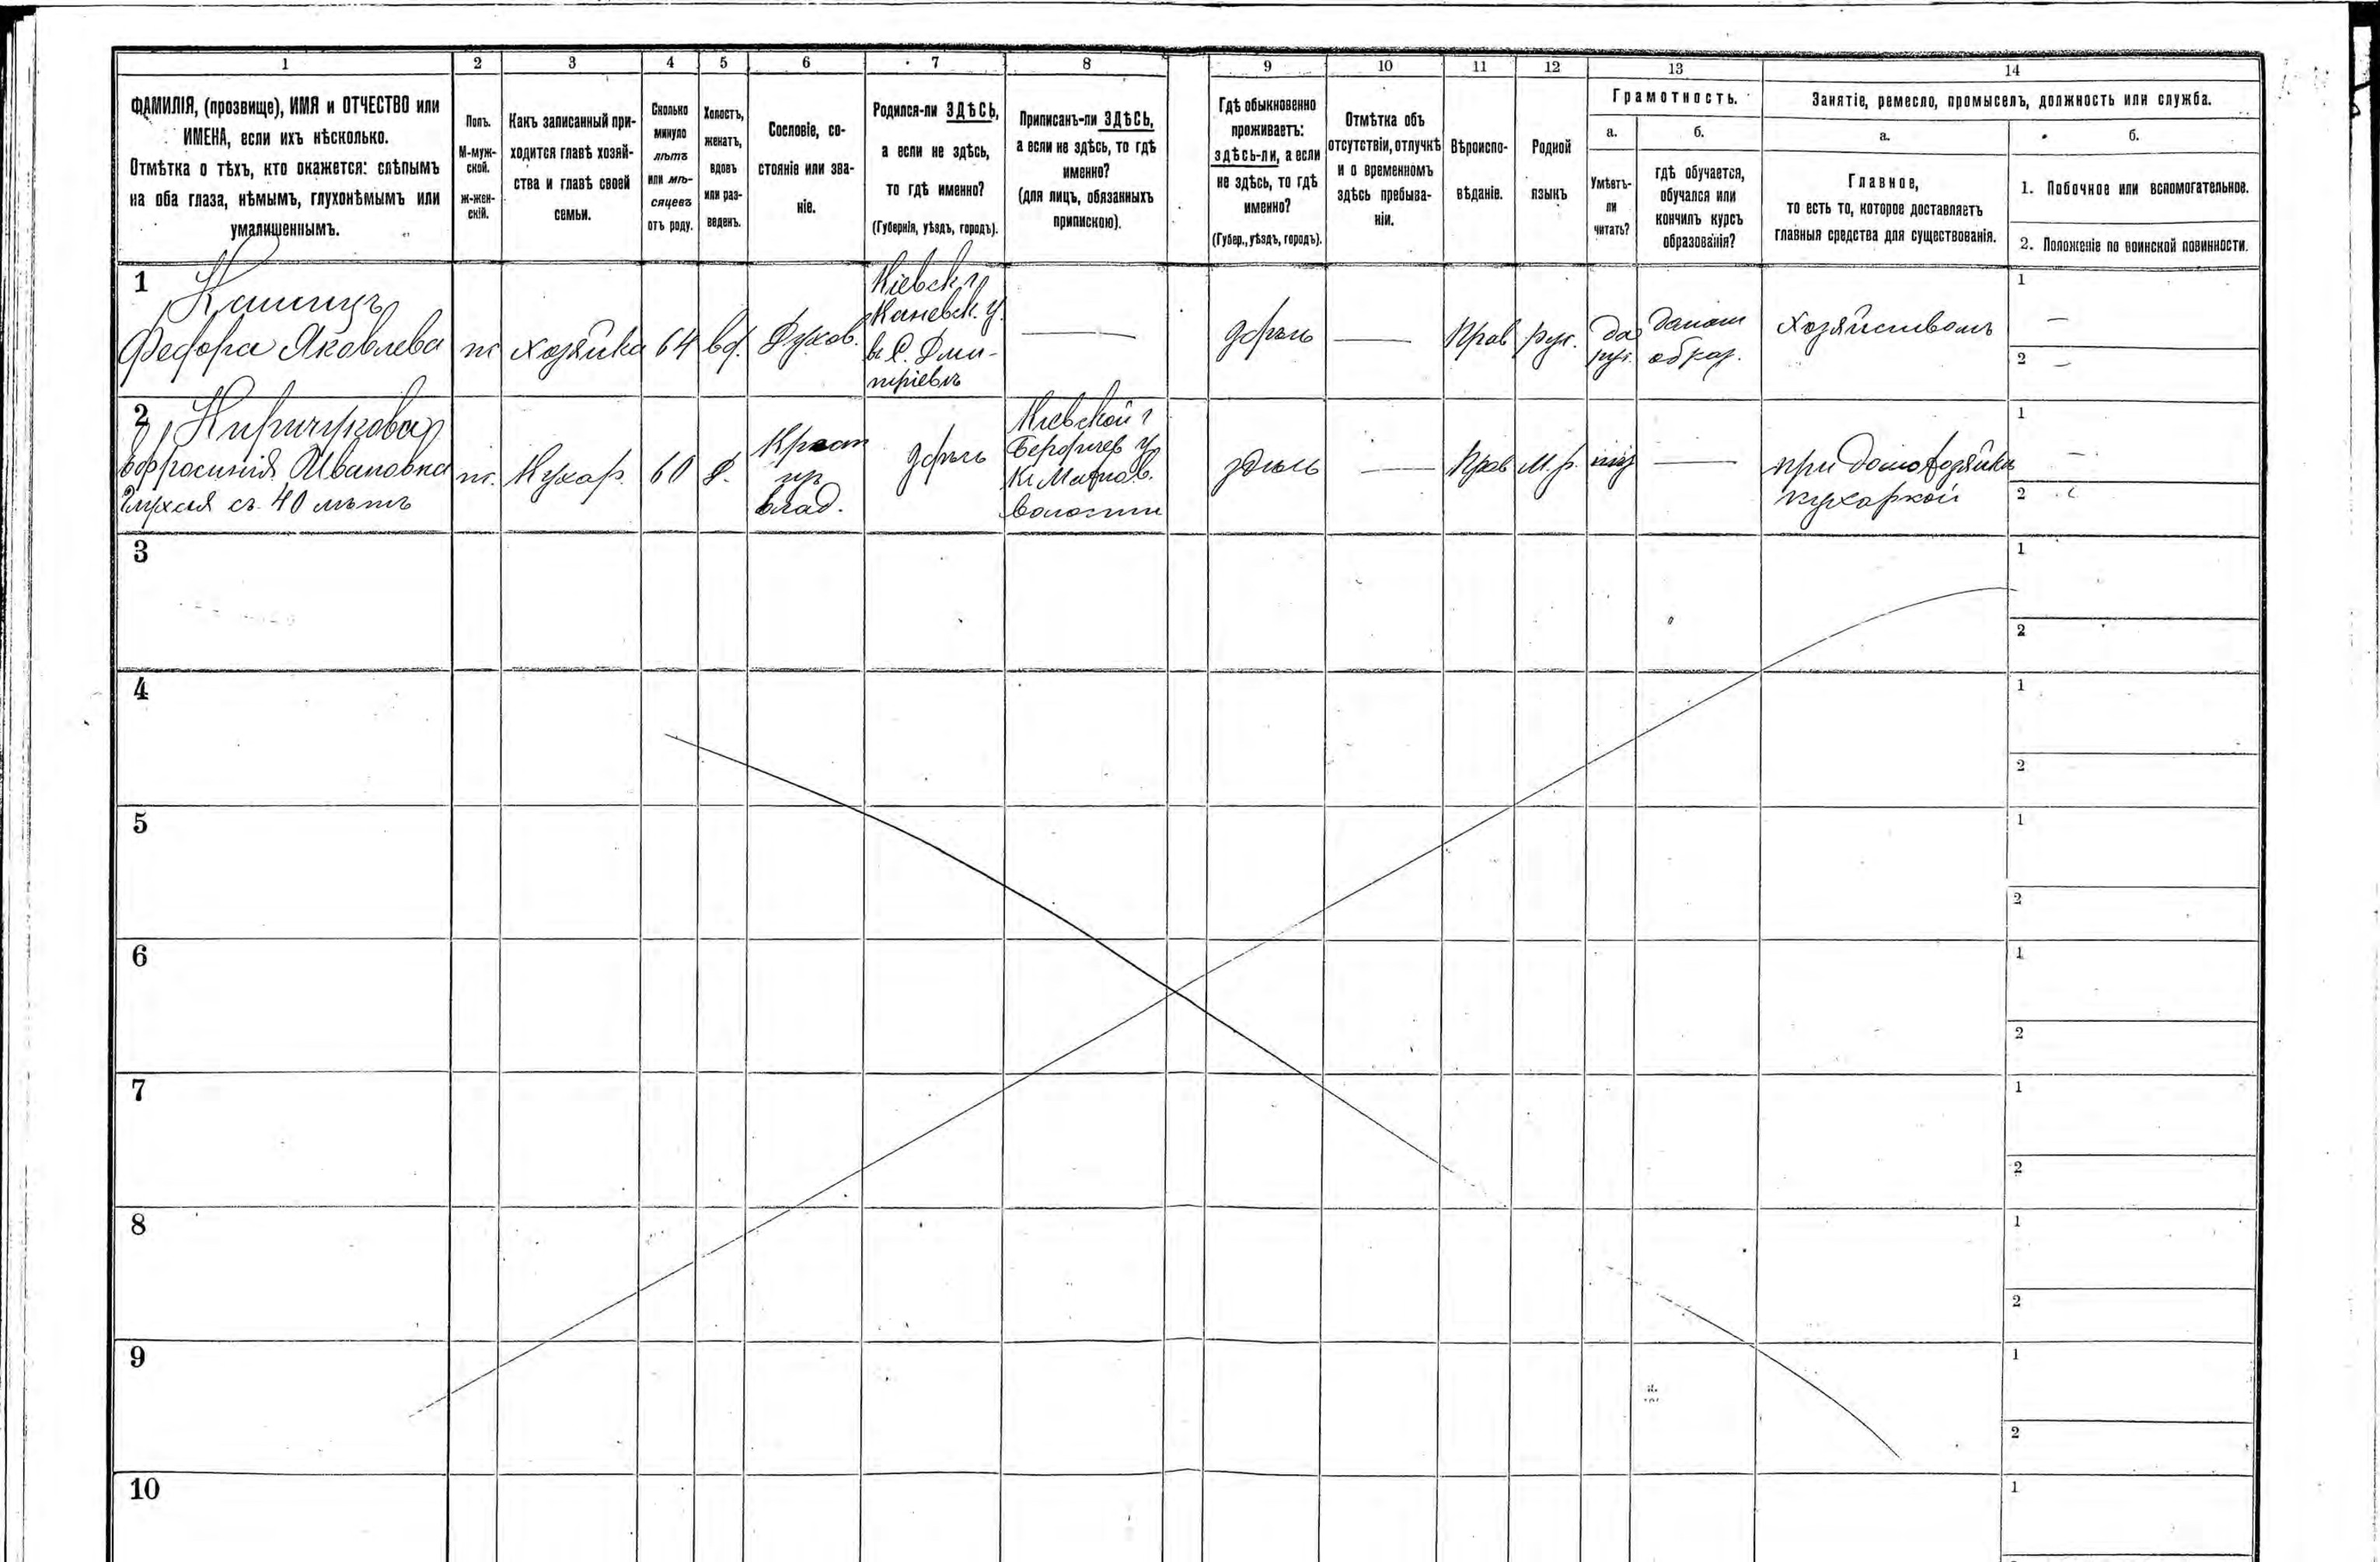 1 2 3 4 5 6 7 8 9 10 11 12 13 14
ФАМИЛІЯ, (прозвище), ИМЯ и ОТЧЕСТВО или
ИМЕНА, если ихъ нѣсколько.
Отмѣтка о тѣхъ, кто окажется: слѣпымъ
на оба глаза, нѣмымъ, глухонѣмымъ или
умалишеннымъ.
Полъ.
М-муж-
ской.
ж-жен-
скій.
Какъ записанный при-
ходится главѣ хозяй-
ства и главѣ своей
семьи.
Сколько
минуло
лѣтъ
или мѣ-
сяцевъ
отъ роду.
Холостъ,
женатъ,
вдовъ
или раз-
веденъ.
Сословіе, со-
стояніе или зва-
ніе.
Родился-ли ЗДѢСЬ,
а если не здѣсь,
то гдѣ именно?
(Губернія, уѣздъ, городъ).
Приписанъ-ли ЗДѢСЬ,
а если не здѣсь, то гдѣ
именно?
(для лицъ, обязанныхъ
припискою).
Гдѣ обыкновенно
проживаетъ:
здѣсь-ли, а если
не здѣсь, то гдѣ
именно?
(Губер., уѣздъ, городъ).
Отмѣтка объ
отсутствіи, отлучкѣ
и о временномъ
здѣсь пребыва-
ніи.
Вѣроиспо-
вѣданіе.
Родной
языкъ
Грамотность.
а.
Умѣетъ-
ли
читать?
б.
гдѣ обучается,
обучался или
кончилъ курсъ
образованія?
Занятіе, ремесло, промыселъ, должность или служба.
а.
Главное,
то есть то, которое доставляетъ
главныя средства для существованія.
б.
1. Побочное или вспомогательное.
2. Положеніе по воинской повинности.
1
Федора Яковлева
ж
хозяйка
64
вд.
Духов.
Кіевск. г.
Каневск. у.
в С. Дми-
тріевкѣ
—
здѣсь
—
Прав
рус.
да
рус.
домаш
образ.
Хозяйствомъ
1 —
2 —
2
Ефросинія Ивановна
Глухая съ 40 лѣтъ
ж.
Кухар.
60
Д.
Крест
из
влад.
здѣсь
Кіевской г
Бердичев у
волости
здѣсь
—
Прав
М. р.
нѣт
—
при домохозяйкѣ
кухаркой
1 —
2
3
1
2
4
1
2
5
1
2
6
1
2
7
1
2
8
1
2
9
1
2
10
1